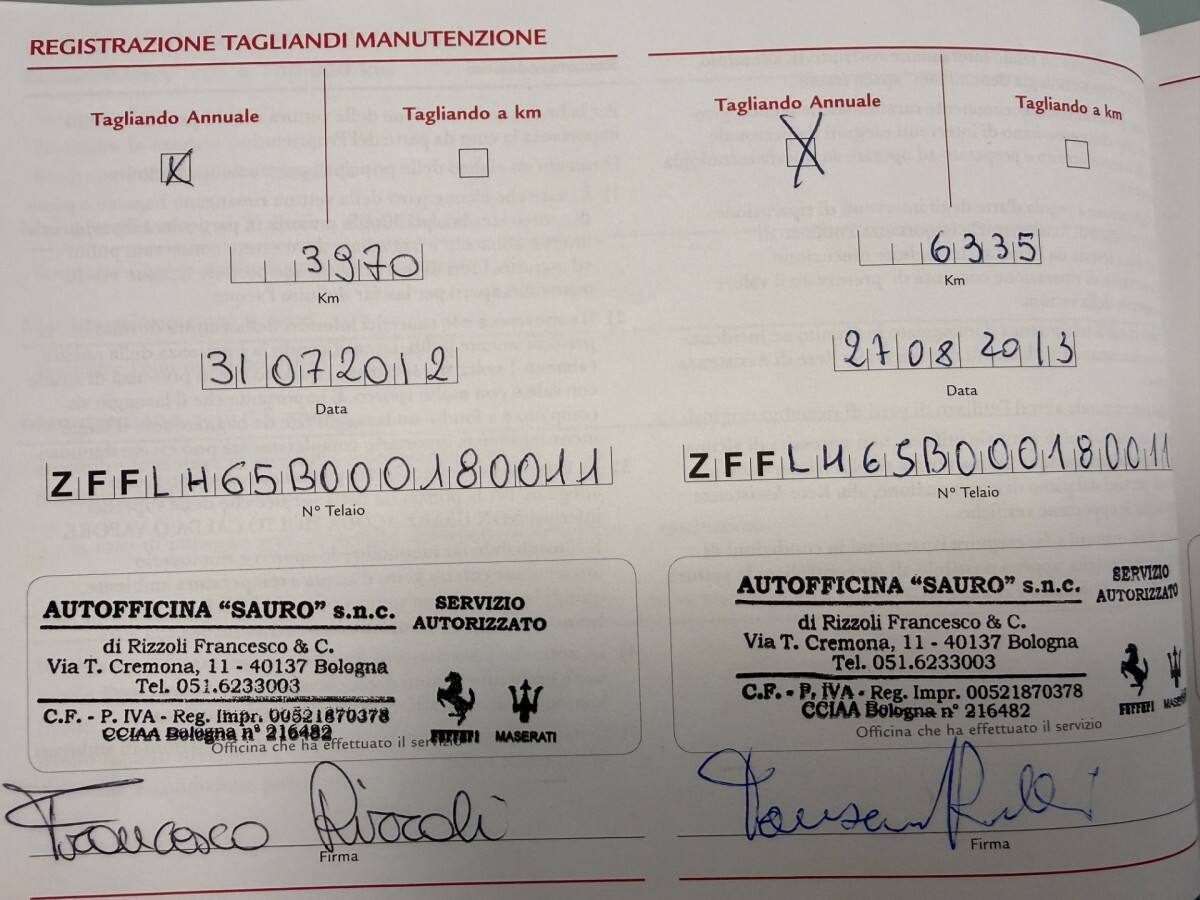 REGISTRAZIONE TAGLIANDI MANUTENZIONE
Tagliando Annuale
Tagliando a km
3970
Km
31072012
Data
ZFFLH65B000180011
N° Telaio
AUTOFFICINA "SAURO" s.n.c.
di Rizzoli Francesco & C.
Via T. Cremona, 11 - 40137 Bologna
Tel. 051.6233003
C.F. - P. IVA - Reg. Impr. 00521870378
CCIAA Bologna n° 216482
SERVIZIO
AUTORIZZATO
FERRARI
MASERATI
Officina che ha effettuato il servizio
Francesco Rizzoli
Firma
Tagliando Annuale
Tagliando a km
6335
Km
27082013
Data
ZFFLH65B000180011
N° Telaio
AUTOFFICINA "SAURO" s.n.c.
di Rizzoli Francesco & C.
Via T. Cremona, 11 - 40137 Bologna
Tel. 051.6233003
C.F. - P. IVA - Reg. Impr. 00521870378
CCIAA Bologna n° 216482
SERVIZIO
AUTORIZZATO
FERRARI
Officina che ha effettuato il servizio
Firma